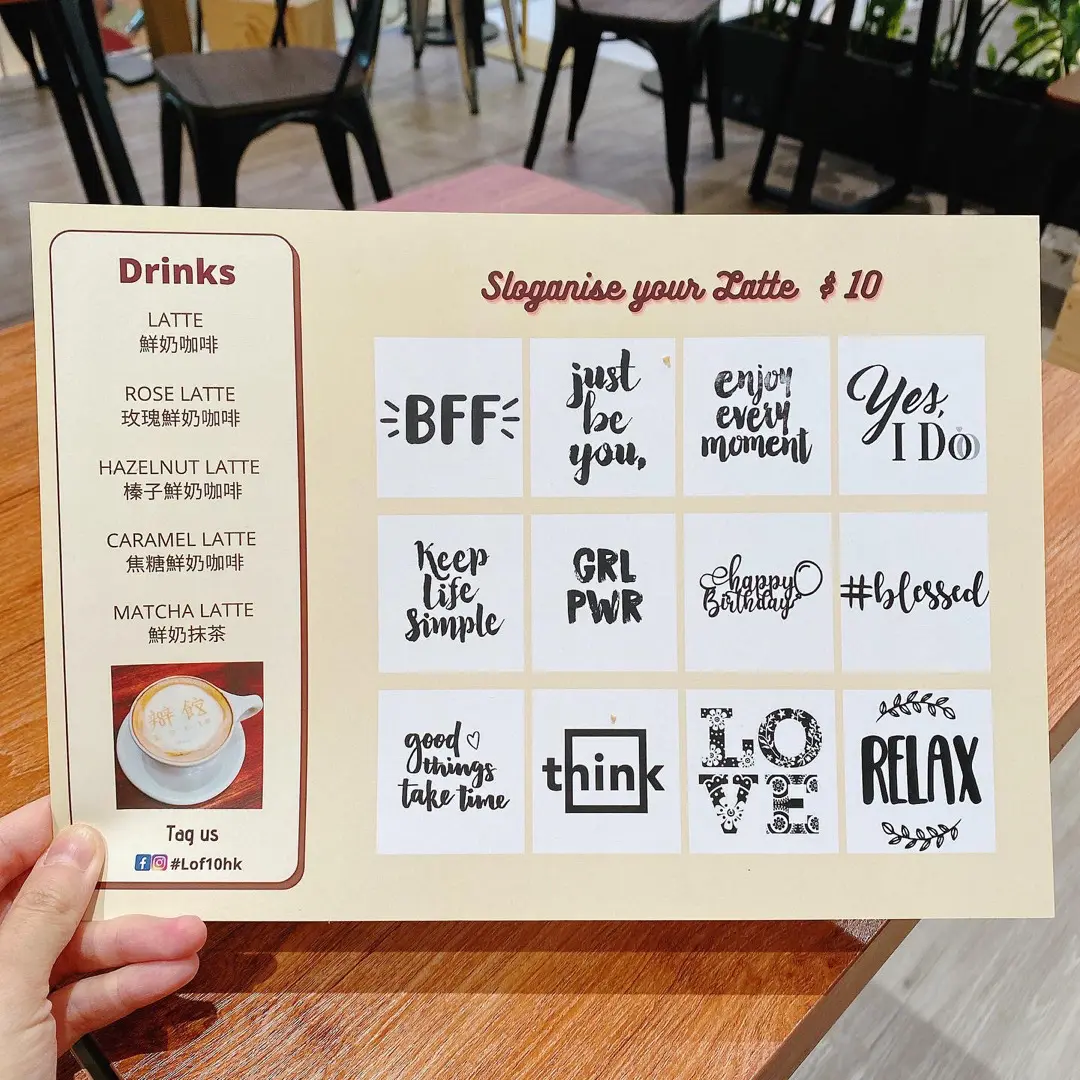 Drinks
LATTE
鮮奶咖啡
ROSE LATTE
玫瑰鮮奶咖啡
HAZELNUT LATTE
榛子鮮奶咖啡
CARAMEL LATTE
焦糖鮮奶咖啡
MATCHA LATTE
鮮奶抹茶
辯館
Tag us
#Lof10hk
Sloganise your Latte $ 10
BFF
just
be
you,
enjoy
every
moment
Yes,
I Do
Keep
life
Simple
GRL
PWR
happy
Birthday
#blessed
good
things
take time
think
LO
VE
RELAX